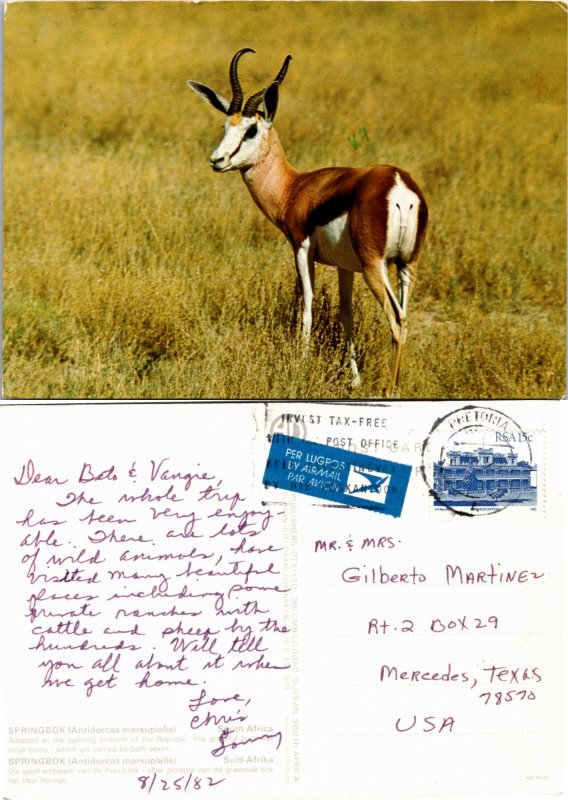 INVEST TAX-FREE
WITH THE POST OFFICE
PER LUGPOS
BY AIRMAIL
PAR AVION
PRETORIA
RSA 15c
Dear Beto & Vangie,
The whole trip
has been very enjoy-
able. There are lots
of wild animals, have
visited many beautiful
places including some
private ranches with
cattle and sheep by the
hundreds. Will tell
you all about it when
we get home.
Love,
Chris
8/25/82
MR. & MRS.
Gilberto Martinez
Rt. 2 Box 29
Mercedes, Texas
78570
USA
SPRINGBOK (Antidorcas marsupialis) South Africa
Adopted as the sporting emblem of the Republic, this
small horns - which are carried by both sexes.
SPRINGBOK (Antidorcas marsupialis) Suid-Afrika
Die sport-embleem van die Republiek
het klein horings.